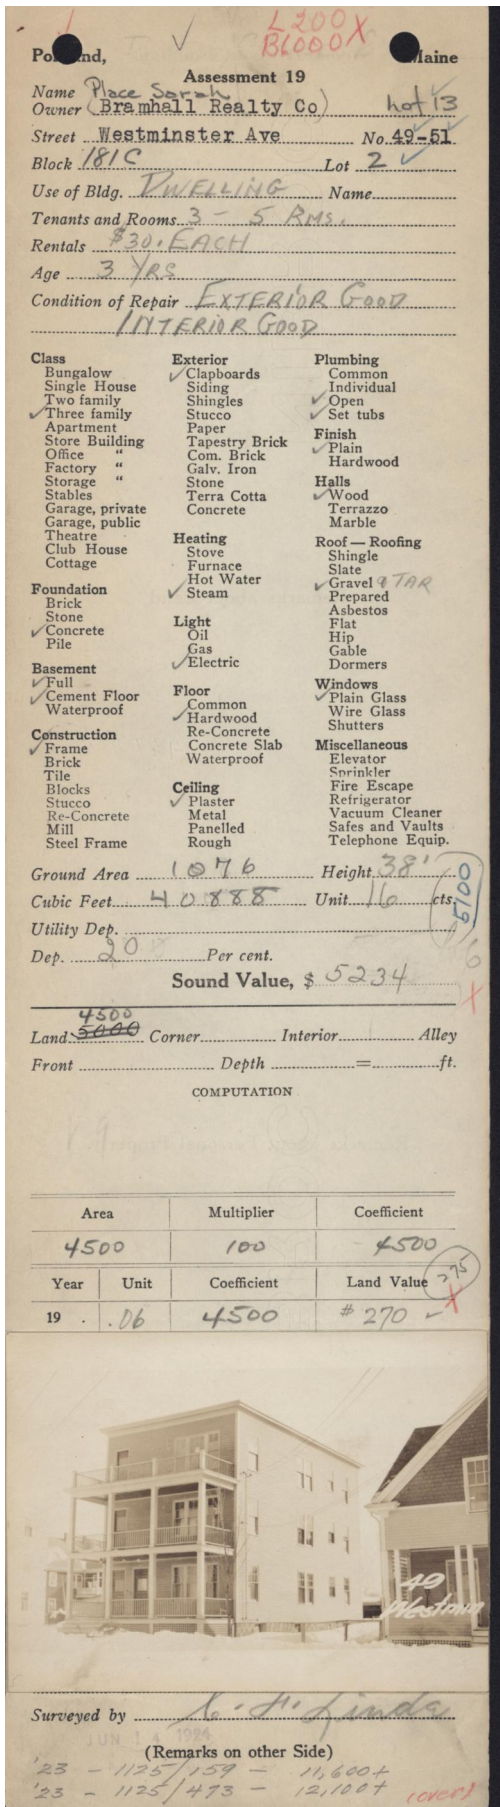 L 200 X
B 6000 X
Portland, Maine
Assessment 19
Name Place Sarah
Owner (Bramhall Realty Co) Lot 13
Street Westminster Ave No. 49-51
Block 181C Lot 2
Use of Bldg. DWELLING Name
Tenants and Rooms 3 - 5 RMS.
Rentals $30. EACH
Age 3 YRS
Condition of Repair EXTERIOR GOOD
INTERIOR GOOD
Class
Bungalow
Single House
Two family
✓ Three family
Apartment
Store Building
Office "
Factory "
Storage "
Stables
Garage, private
Garage, public
Theatre
Club House
Cottage
Foundation
Brick
Stone
✓ Concrete
Pile
Basement
✓ Full
✓ Cement Floor
Waterproof
Construction
✓ Frame
Brick
Tile
Blocks
Stucco
Re-Concrete
Mill
Steel Frame
Exterior
✓ Clapboards
Siding
Shingles
Stucco
Paper
Tapestry Brick
Com. Brick
Galv. Iron
Stone
Terra Cotta
Concrete
Heating
Stove
Furnace
Hot Water
✓ Steam
Light
Oil
Gas
✓ Electric
Floor
Common
✓ Hardwood
Re-Concrete
Concrete Slab
Waterproof
Ceiling
✓ Plaster
Metal
Panelled
Rough
Plumbing
Common
Individual
✓ Open
✓ Set tubs
Finish
✓ Plain
Hardwood
Halls
✓ Wood
Terrazzo
Marble
Roof — Roofing
Shingle
Slate
✓ Gravel & TAR
Prepared
Asbestos
Flat
Hip
Gable
Dormers
Windows
✓ Plain Glass
Wire Glass
Shutters
Miscellaneous
Elevator
Sprinkler
Fire Escape
Refrigerator
Vacuum Cleaner
Safes and Vaults
Telephone Equip.
Ground Area 1076 Height 38'
Cubic Feet 40888 Unit 16 cts.
5100
Utility Dep.
Dep. 20 Per cent.
Sound Value, $ 5234
X
4500
Land 5000 Corner Interior Alley
Front Depth = ft.
COMPUTATION
Area Multiplier Coefficient
4500 100 4500
Year Unit Coefficient Land Value 275
X
19 . .06 4500 $ 270
49
Westmin
Surveyed by
JUN 14 1924
(Remarks on other Side)
'23 - 1125/159 - 11,600+
'23 - 1125/473 - 12,100+
(over)